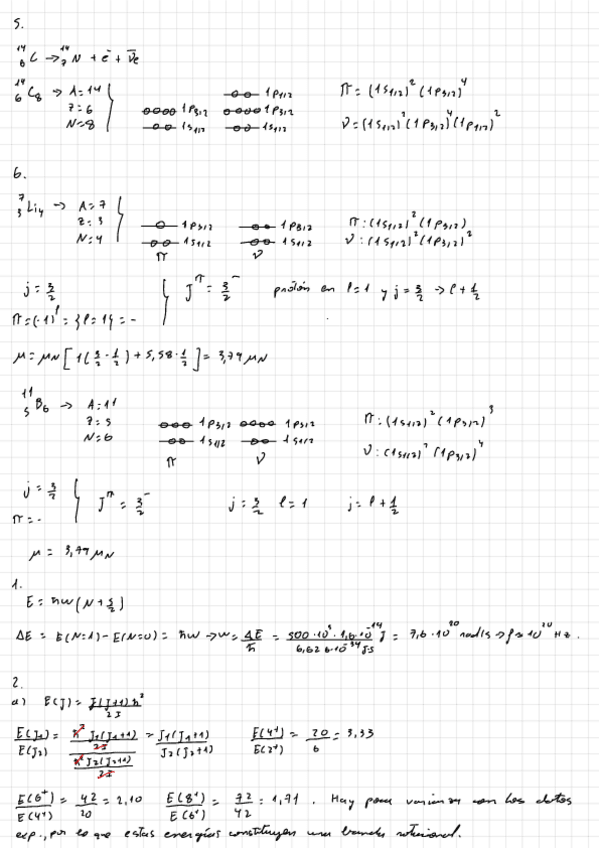 5.
¹⁴₆C → ¹⁴₇N + e⁻ + ν̄e
¹⁴₆C₈ → A=14
Z=6
N=8
1p1/2
1p3/2 1p3/2
1s1/2 1s1/2
π = (1s1/2)² (1p3/2)⁴
ν = (1s1/2)² (1p3/2)⁴ (1p1/2)²
6.
⁷₃Li₄ → A=7
Z=3
N=4
1p3/2 1p3/2
1s1/2 1s1/2
π ν
π: (1s1/2)² (1p3/2)
ν: (1s1/2)² (1p3/2)²
j = 3/2
π = (-1)^l = {l=1} = -
J^π = 3/2⁻ protón en l=1 y j=3/2 → l + 1/2
μ = μN [1(3/2 - 1/2) + 5,58 · 1/2] = 3,79 μN
¹¹₅B₆ → A=11
Z=5
N=6
1p3/2 1p3/2
1s1/2 1s1/2
π ν
π: (1s1/2)² (1p3/2)³
ν: (1s1/2)² (1p3/2)⁴
j = 3/2
π = -
J^π = 3/2⁻ j = 3/2 l = 1 j = l + 1/2
μ = 3,79 μN
1.
E = ħω(N + 3/2)
ΔE = E(N=1) - E(N=0) = ħω → ω = ΔE/ħ = = 7,6·10²⁰ rad/s → f ≈ 10²⁰ Hz.
2.
a) E(J) = J(J+1)ħ²/2I
E(J1)/E(J2) = (ħ² J1(J1+1)/2I)/(ħ² J2(J2+1)/2I) = J1(J1+1)/J2(J2+1) E(4⁺)/E(2⁺) = 20/6 = 3,33
E(6⁺)/E(4⁺) = 42/20 = 2,10 E(8⁺)/E(6⁺) = 72/42 = 1,71 . Hay poca varianza con los datos
exp., por lo que estas energías constituyen una banda rotacional.